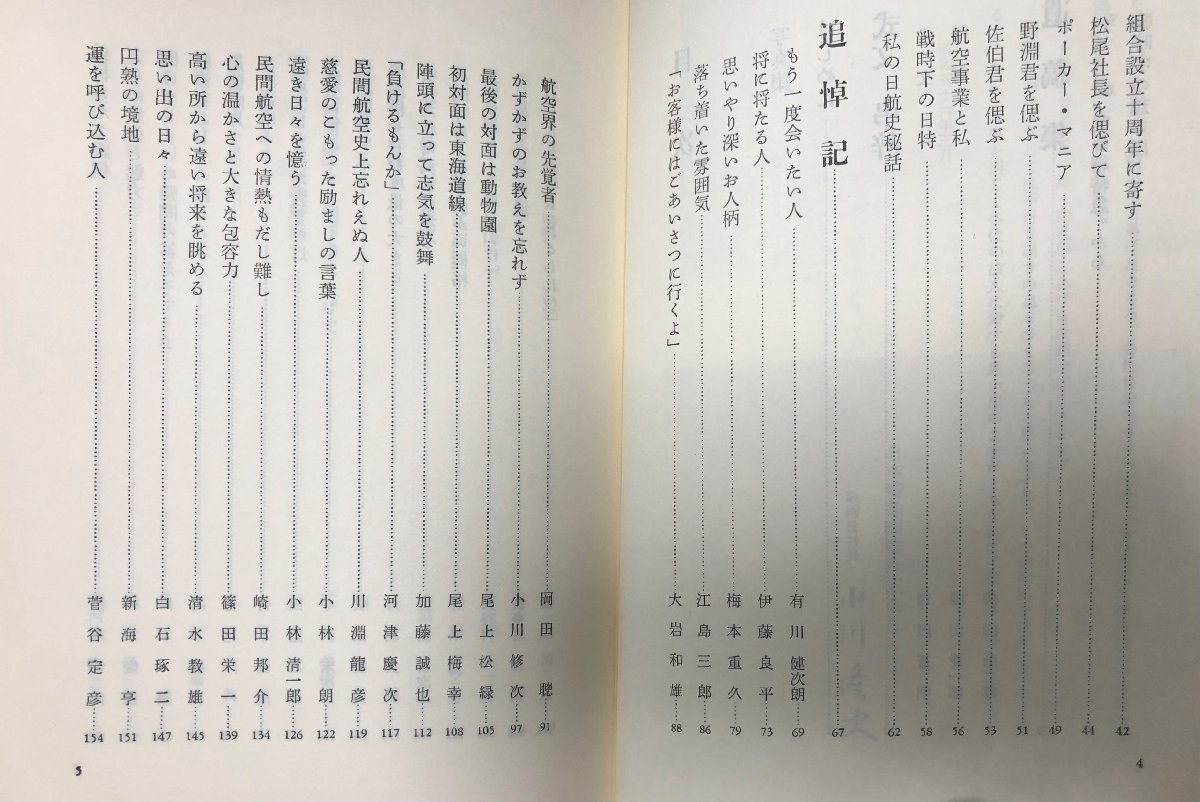 組合設立十周年に寄す……42
松尾社長を偲びて……44
ポーカー・マニア……49
野淵君を偲ぶ……51
佐伯君を偲ぶ……53
航空事業と私……56
戦時下の日特……58
私の日航史秘話……62
追悼記……67
もう一度会いたい人……有川健次朗……69
将に将たる人……伊藤良平……73
思いやり深いお人柄……梅本重久……79
落ち着いた雰囲気……江島三郎……86
「お客様にはごあいさつに行くよ」……大岩和雄……88
4
航空界の先覚者……岡田聰……91
かずかずのお教えを忘れず……小川修次……97
最後の対面は動物園……尾上松緑……105
初対面は東海道線……尾上梅幸……108
陣頭に立って志気を鼓舞……加藤誠也……112
「負けるもんか」……河津慶次……117
民間航空史上忘れえぬ人……川淵龍彦……119
慈愛のこもった励ましの言葉……小林朗……122
遠き日々を憶う……小林清一郎……126
民間航空への情熱もだし難し……崎田邦介……134
心の温かさと大きな包容力……篠田栄一……139
高い所から遠い将来を眺める……清水教雄……145
思い出の日々……白石琢二……147
円熟の境地……新海亨……151
運を呼び込む人……菅谷定彦……154
5